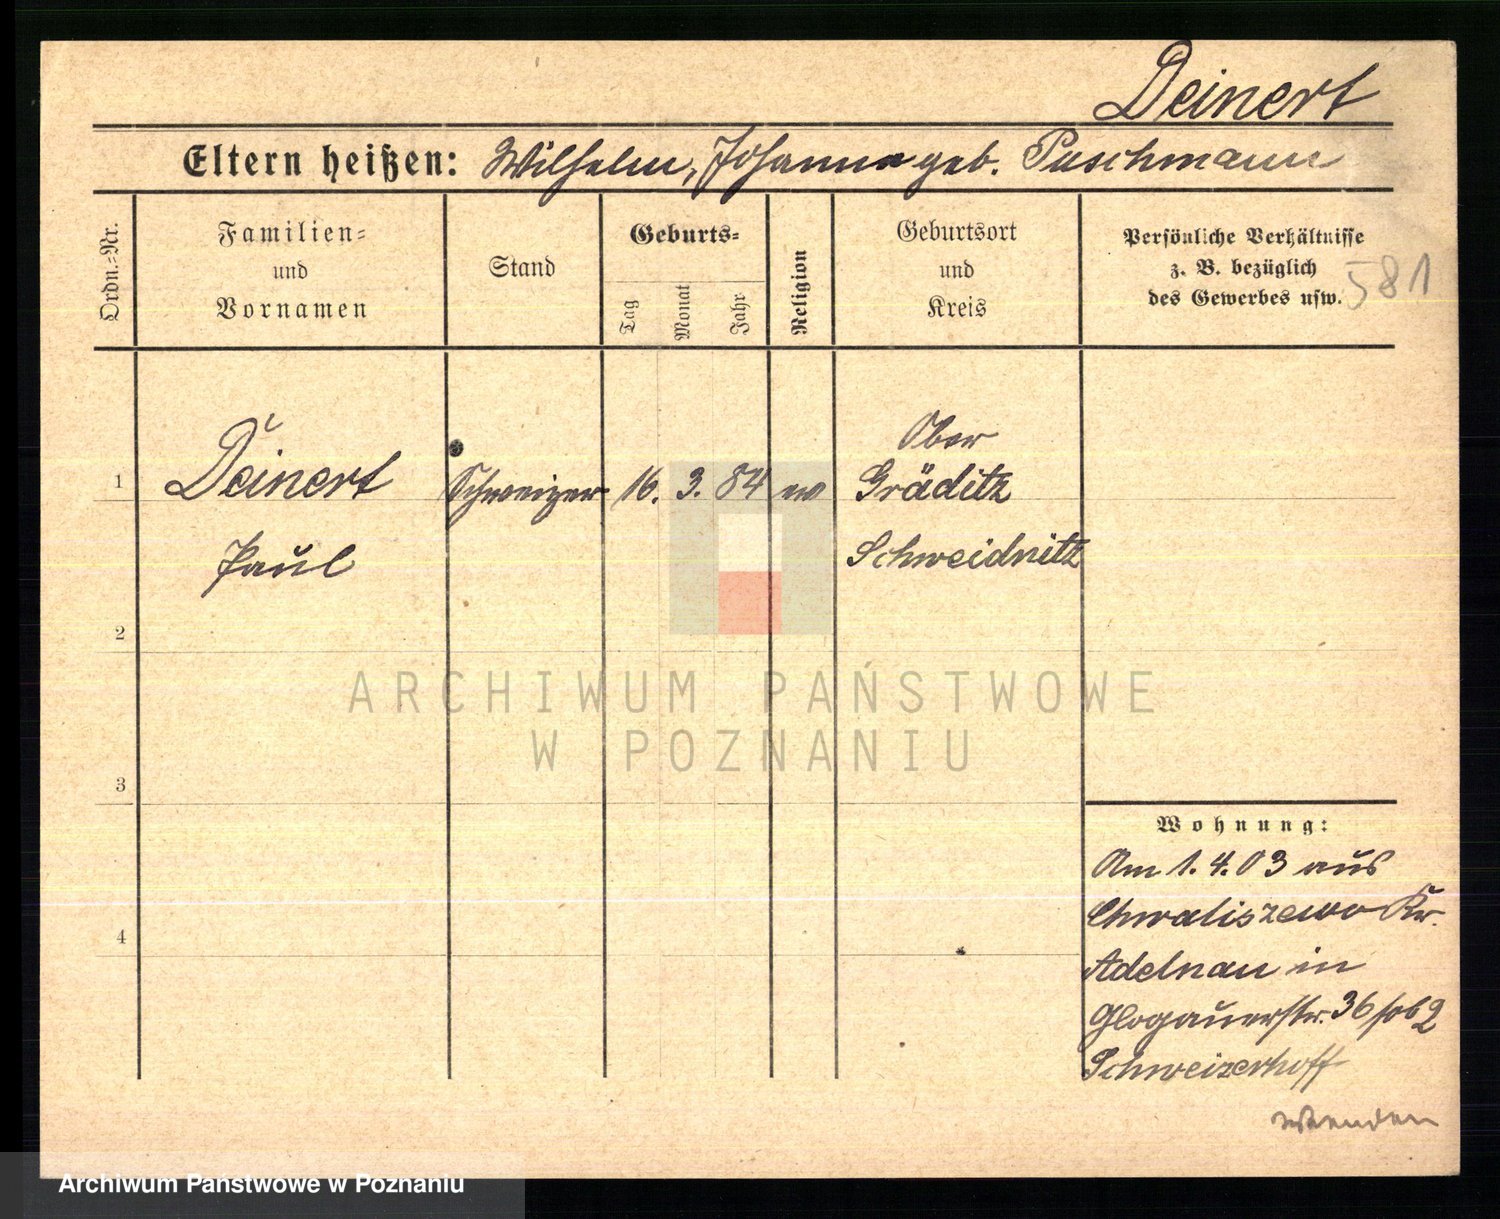 Deinert
Eltern heißen: Wilhelm, Johanna geb. Puschmann
Ordn.-Nr.
Familien-
und
Vornamen
Stand
Geburts-
Tag
Monat
Jahr
Religion
Geburtsort
und
Kreis
Persönliche Verhältnisse
z. B. bezüglich
des Gewerbes usw.
581
1
Deinert
Paul
Schweizer
16.
3.
84
ev
Ober
Gräditz
Schweidnitz
2
3
4
Wohnung:
Am 1. 4. 03 aus
Chwaliszewo Kr.
Adelnau in
Glogauerstr. 36
Schweizerhoff
wenden
ARCHIWUM PAŃSTWOWE
W POZNANIU
Archiwum Państwowe w Poznaniu